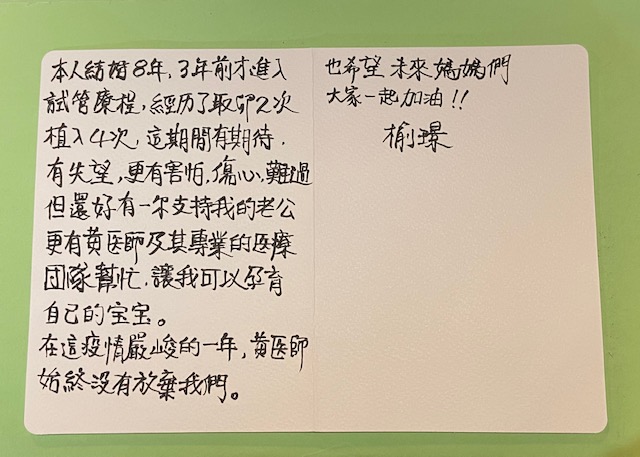 本人結婚8年,3年前才進入
試管療程,經历了取卵2次
植入4次,這期間有期待.
有失望,更有害怕,傷心,難過
但還好有一尔支持我的老公
更有黃医師及其專業的医療
团隊幫忙.讓我可以孕育
自己的宝宝。
在這疫情嚴峻的一年,黃医師
始終沒有放棄我們。
也希望未來媽媽們
大家一起加油!!